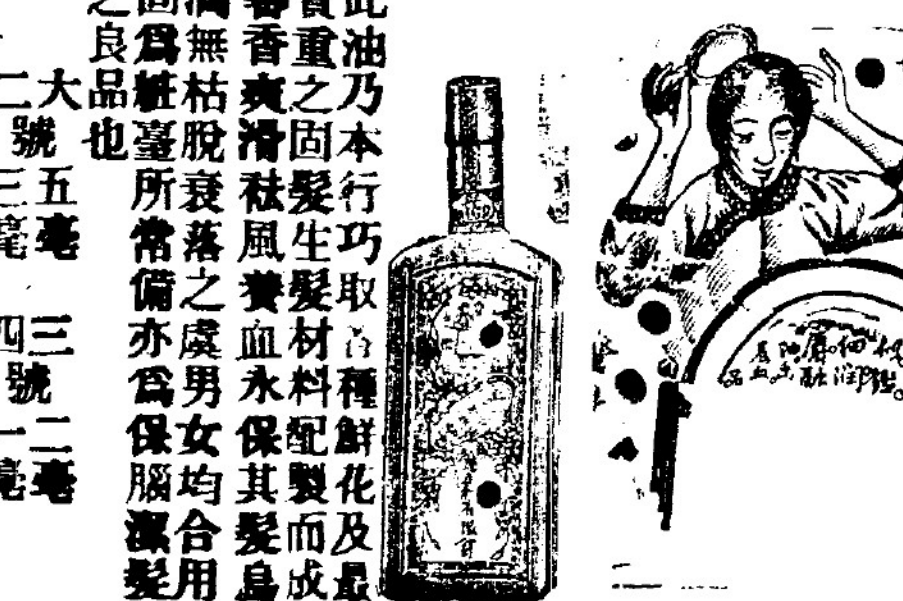 此油乃本行巧取種鮮花及最
貴重之固髮生髮材料配製而成
香爽滑祛風養血永保其髮烏
無枯脫衰落之虞男女均合用
固爲粧臺所常備亦爲保腦潔髮
之良品也
大號五毫三號二毫
二號三毫四號一毫